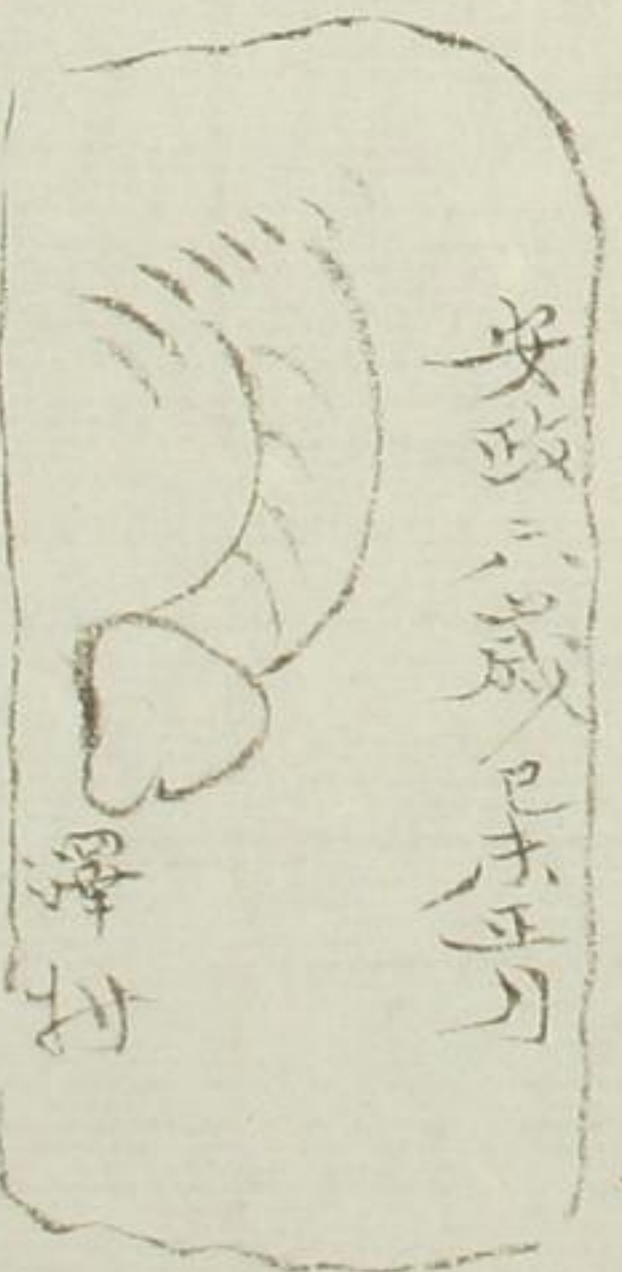 安政六歳己未正月